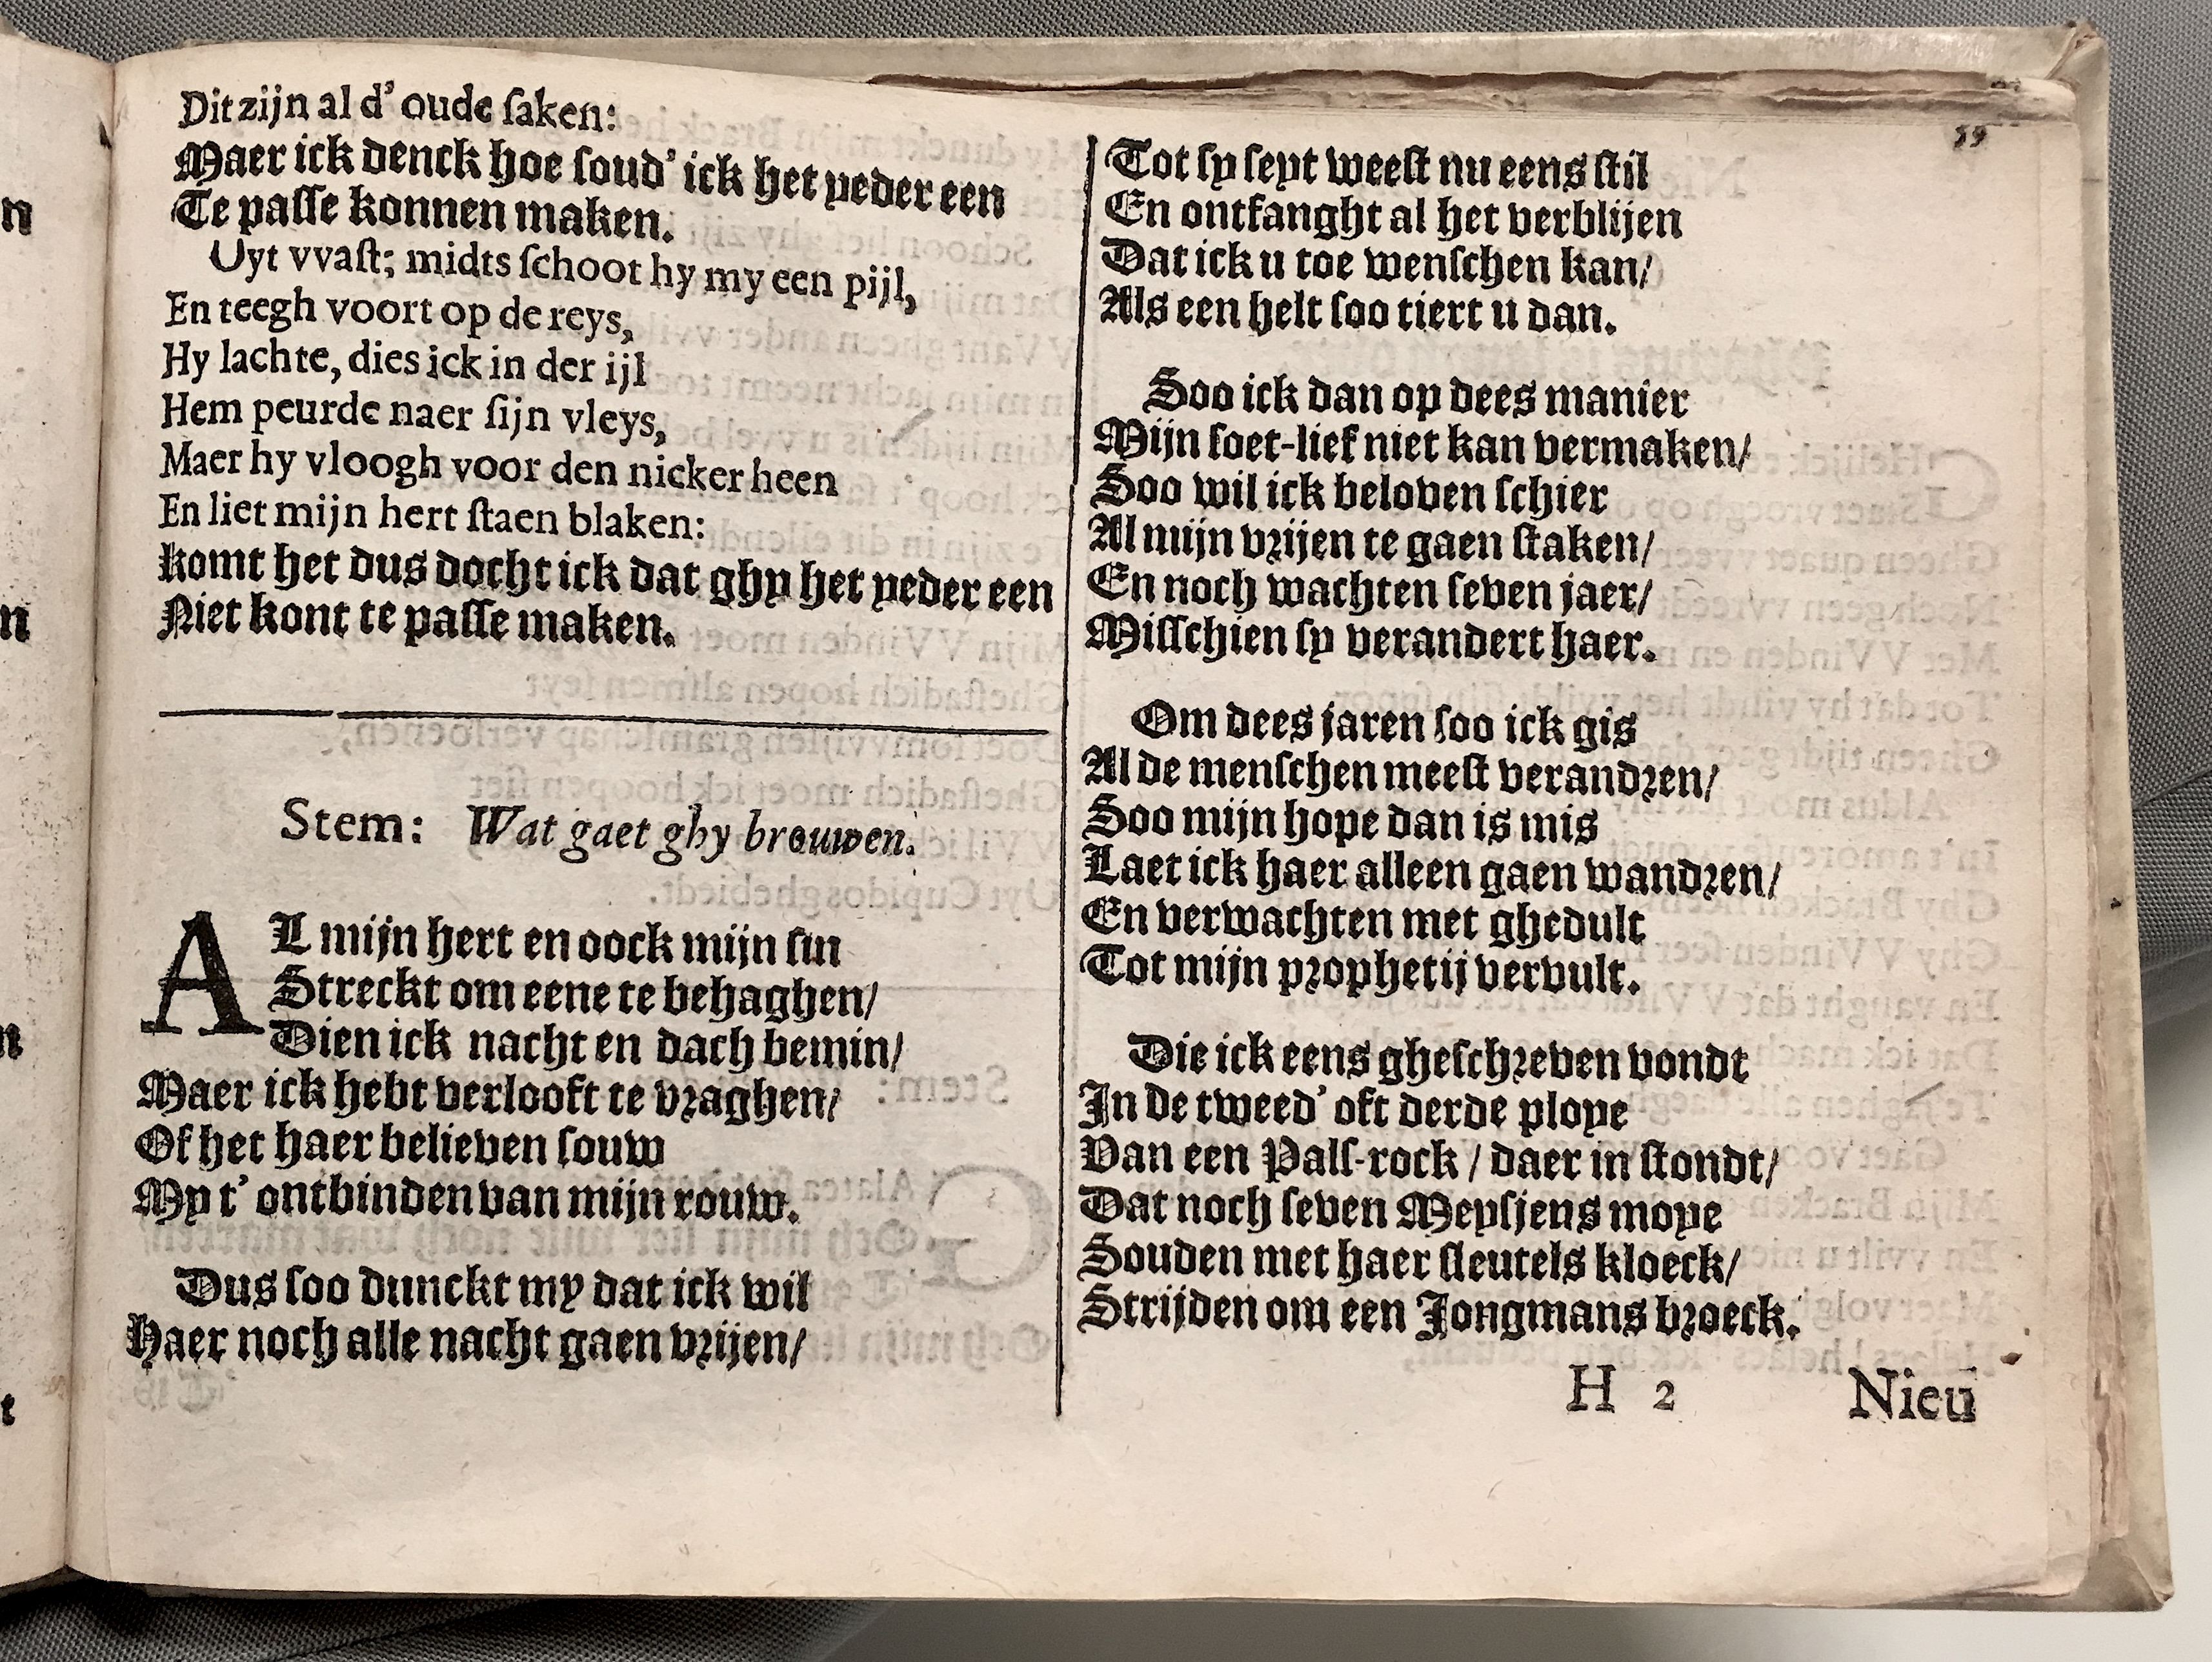 Dit zijn al d' oude ſaken:
Maer ick denck hoe ſoud' ick het yeder een
Te paſſe konnen maken.
Uyt vvaſt; midts ſchoot hy my een pijl,
En teegh voort op de reys,
Hy lachte, dies ick in der ijl
Hem peurde naer ſijn vleys,
Maer hy vloogh voor den nicker heen
En liet mijn hert ſtaen blaken:
Komt het dus docht ick dat ghy het yeder een
Niet kont te paſſe maken.
Stem: Wat gaet ghy brouwen.
AL mijn hert en oock mijn ſin
Streckt om eene te behaghen/
Dien ick nacht en dach bemin/
Maer ick hebt verlooft te vraghen/
Of het haer believen ſouw
My t' ontbinden van mijn rouw.
Dus ſoo dunckt my dat ick wil
Haer noch alle nacht gaen vrijen/
59
Tot ſy ſeyt weeſt nu eens ſtil
En ontfanght al het verblijen
Dat ick u toe wenſchen kan/
Als een helt ſoo tiert u dan.
Soo ick dan op dees manier
Mijn ſoet-lief niet kan vermaken/
Soo wil ick beloven ſchier
Al mijn vrijen te gaen ſtaken/
En noch wachten ſeven jaer/
Miſſchien ſy verandert haer.
Om dees jaren ſoo ick gis
Al de menſchen meeſt verandren/
Soo mijn hope dan is mis
Laet ick haer alleen gaen wandren/
En verwachten met ghedult
Tot mijn prophetij vervult.
Die ick eens gheſchreven vondt
In de tweed' oft derde ploye
Van een Palſ-rock / daer in ſtondt/
Dat noch ſeven Meyſjens moye
Souden met haer ſleutels kloeck/
Strijden om een Jongmans broeck.
H 2 Nieu